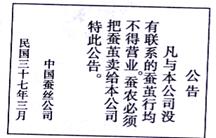 公告
凡与本公司没
有联系的蚕茧行均
不得营业。蚕农必须
把蚕茧卖给本公司
特此公告。
中国蚕丝公司
民国三十七年三月